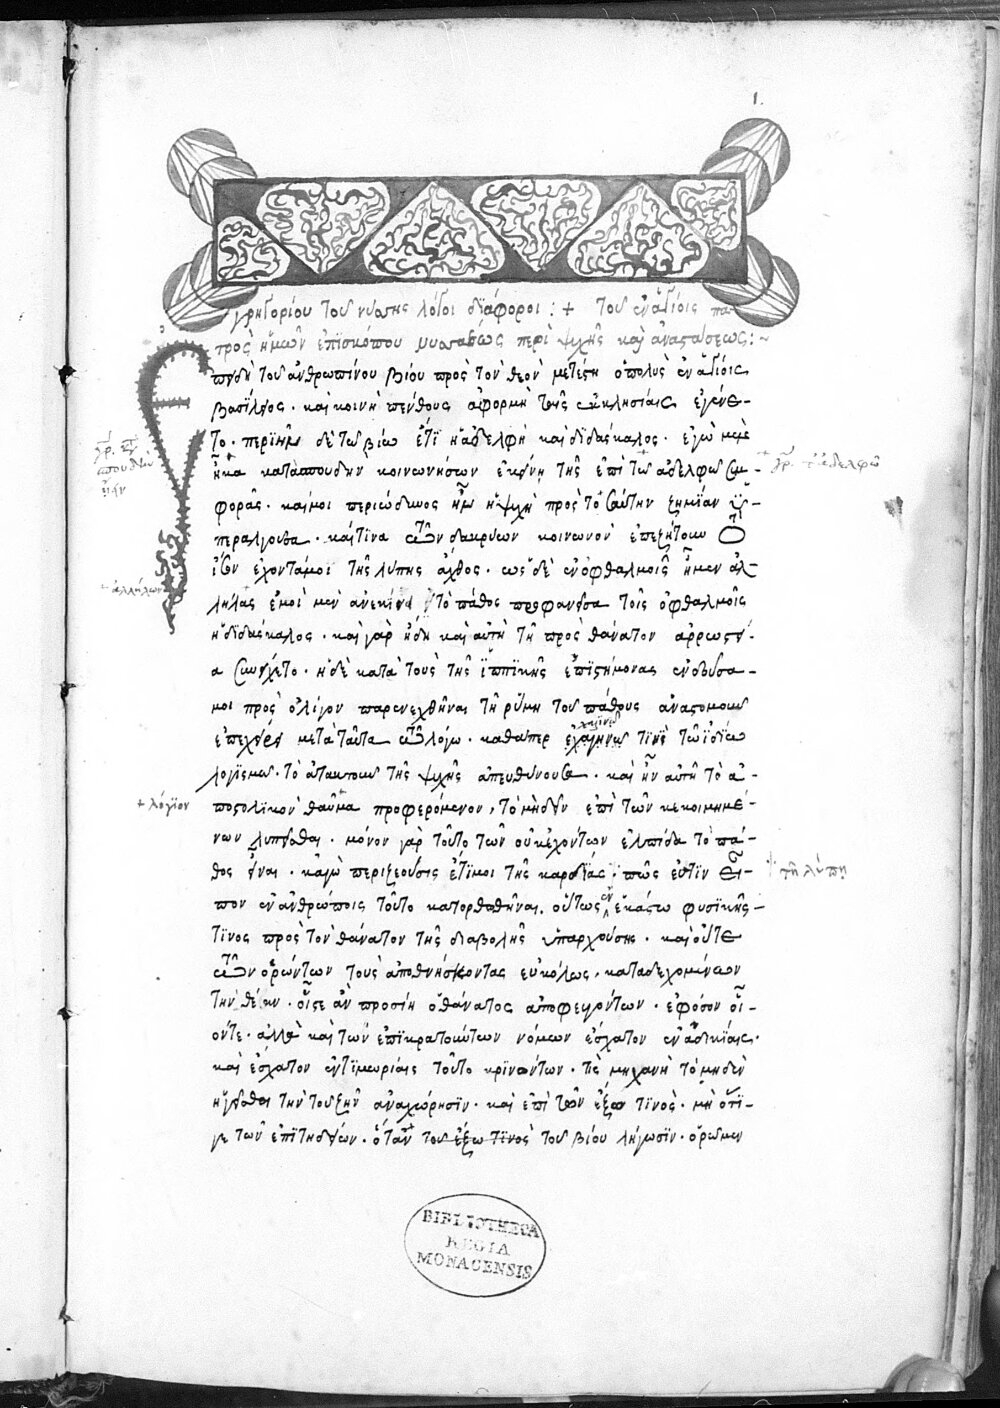 1.
γρηγορίου τοῦ νύσης λόγοι διάφοροι : + τοῦ ἐν ἁγίοις πα
τρὸς ἡμῶν ἐπισκόπου νύσσης περὶ ψυχῆς καὶ ἀναστάσεως : ~
πειδὴ τοῦ ἀνθρωπίνου βίου πρὸς τὸν θεὸν μετέστη ὁ πολὺς ἐν ἁγίοις
βασίλειος . καὶ κοινὴ πένθους ἀφορμὴ ταῖς ἐκκλησίαις ἐγένε-
το . περιῆν δὲ τῶ βίω ἔτι ἡ ἀδελφὴ καὶ διδάσκαλος . ἐγὼ μὲν
κατὰ σπουδὴν κοινωνήσων ἐκείνη τῆς ἐπὶ τῶ ἀδελφῶ συμ-
φορᾶς . καί μοι περιώδυνος ἦν ἡ ψυχὴ πρὸς τοσαύτην ζημίαν ὑ-
περαλγοῦσα . καί τινα τῶν δακρύων κοινωνὸν ἐπεζήτουν τὸ
ἴσον ἔχοντά μοι τῆς λύπης ἄχθος . ὡς δὲ ἐν ὀφθαλμοῖς ἦμεν ἀλ-
λήλοις ἐμοὶ μὲν ἀνεκίνει τὸ πάθος προφανεῖσα τοῖς ὀφθαλμοῖς
ἡ διδάσκαλος . καὶ γὰρ ἤδη καὶ αὐτὴ τῆ πρὸς θάνατον ἀρρωστί-
α συνείχετο . ἡ δὲ κατὰ τοὺς τῆς ἱππικῆς ἐπιστήμονας ἐνδοῦσα-
μοι πρὸς ὀλίγον παρενεχθῆναι τῆ ῥύμη τοῦ πάθους ἀναστομοῦν
ἐπεχείρει μετὰ ταῦτα τῶ λόγω . καθάπερ τινὶ τῶ ἰδίω
λογισμῶ . τὸ ἀτακτοῦν τῆς ψυχῆς ἀπευθύνουσα . καὶ ἦν αὐτῆ τὸ ἀ-
ποστολικὸν θαῦμα προφερόμενον , τὸ μὴ δεῖν ἐπὶ τῶν κεκοιμημέ-
νων λυπεῖσθαι . μόνον γὰρ τοῦτο τῶν οὐκ ἐχόντων ἐλπίδα τὸ πά-
θος εἶναι . κἀγὼ περιζεούσης ἔτι μοι τῆς καρδίας : πῶς ἐστὶν εἶ-
πον ἐν ἀνθρώποις τοῦτο κατορθωθῆναι . οὕτως ἐν ἑκάστω φυσικῆς-
τινος πρὸς τὸν θάνατον τῆς διαβολῆς ὑπαρχούσης . καὶ οὔτε
τῶν ὁρώντων τοὺς ἀποθνήσκοντας εὐκόλως . καταδεχομένων
τὴν θέαν . οἷς τε ἂν προσίη ὁ θάνατος ἀποφευγόντων . ἐφόσον οἷ-
όντε . ἀλλὰ καὶ τῶν ἐπικρατούντων νόμων ἔσχατον ἐν ἀδικίαις .
καὶ ἔσχατον ἐν τιμωρίαις τοῦτο κρινόντων . τίς μηχανὴ τὸ μηδὲν
ἡγεῖσθαι τὴν τοῦ ζῆν ἀναχώρησιν . καὶ ἐπὶ τῶν ἔξω τινὸς . μὴ ὅτι-
γε τῶν ἐπιτηδείων . ὅταν τοῦ ἔξω τινὸς τοῦ βίου λήγωσιν . ὁρῶμεν
+ ἀλλήλων
+ λόγιον
γρ. τ' ἀδελφῶ
τῆ λύπη
BIBLIOTHECA
REGIA
MONACENSIS